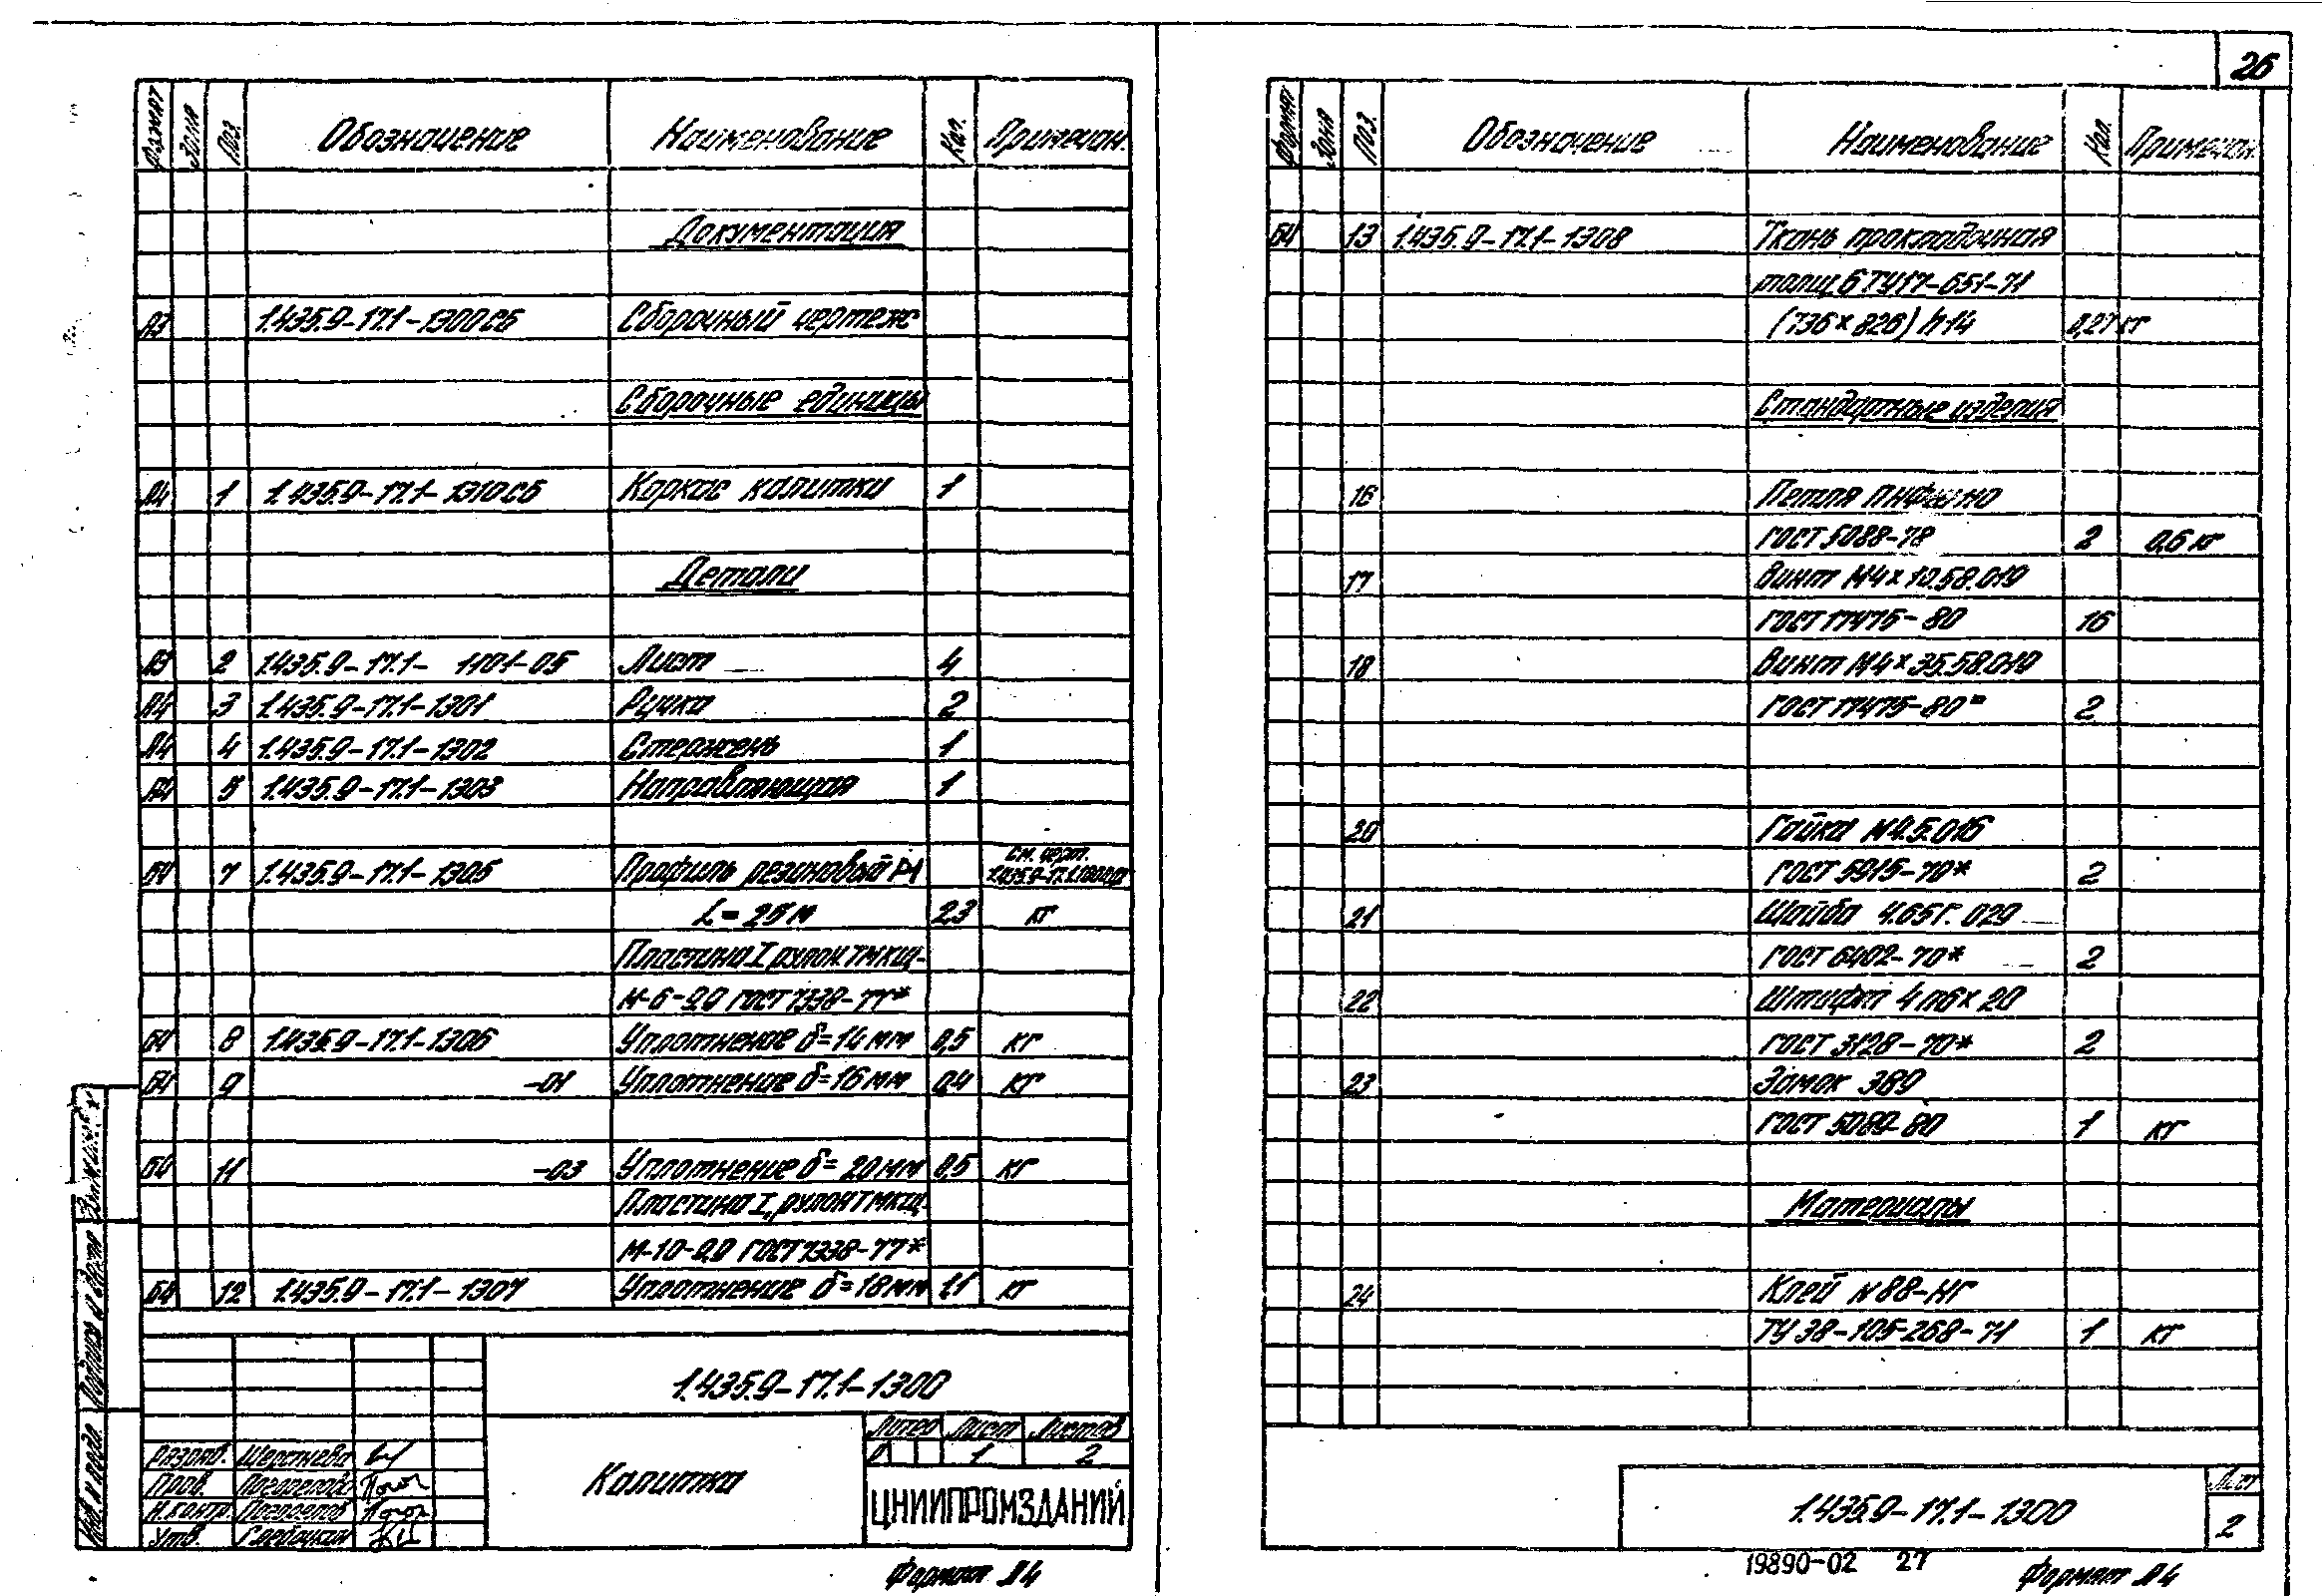 Формат Зона Поз. Обозначение Наименование Кол. Примечан.
Документация
А3 1.435.9-17.1-1300СБ Сборочный чертеж
Сборочные единицы
А4 1 1.435.9-17.1-1310СБ Каркас калитки 1
Детали
А3 2 1.435.9-17.1- 1101-05 Лист 4
А4 3 1.435.9-17.1-1301 Ручка 2
А4 4 1.435.9-17.1-1302 Стержень 1
А4 5 1.435.9-17.1-1303 Направляющая 1
см. черт.
БЧ 7 1.435.9-17.1-1305 Профиль резиновый Р1
L = 25 м 2,3 кг
Пластина I рулон ТМКЩ-
М-6-0,9 ГОСТ 7338-77*
БЧ 8 1.435.9-17.1-1306 Уплотнение δ=14 мм 0,5 кг
БЧ 9 -01 Уплотнение δ=16 мм 0,4 кг
БЧ 11 -03 Уплотнение δ= 20 мм 0,5 кг
Пластина I, рулон ТМКЩ-
М-10-0,9 ГОСТ 7338-77*
БЧ 12 1.435.9-17.1-1307 Уплотнение δ=18 мм 1,1 кг
1.435.9-17.1-1300
Калитка
Литер Лист Листов
Р 1 2
ЦНИИПРОМЗДАНИЙ
Разраб. Шерстнева
Пров.
Н.контр.
Утв.
Взам. инв. №
Подпись и дата
Инв. № подл.
Формат А4
26
Формат Зона Поз. Обозначение Наименование Кол. Примечан.
БЧ 13 1.435.9-17.1-1308 Ткань прокладочная
толщ 6 ТУ17-651-71
(736×826) h14 0,27 кг
Стандартные изделия
16 Петля
ГОСТ 5088-78 2 0,6 кг
17 Винт М4×10.58.019
ГОСТ 17475-80 16
18 Винт М4×35.58.019
ГОСТ 17475-80* 2
20 Гайка М4.5.016
ГОСТ 5915-70* 2
21 Шайба 4.65Г.029
ГОСТ 6402-70* 2
22 Штифт 4п6×20
ГОСТ 3128-70* 2
23 Замок ЗВ9
ГОСТ 5089-80 1 кг
Материалы
24 Клей №88-НГ
ТУ 38-105-268-71 1 кг
1.435.9-17.1-1300
Лист
2
19890-02 27
Формат А4